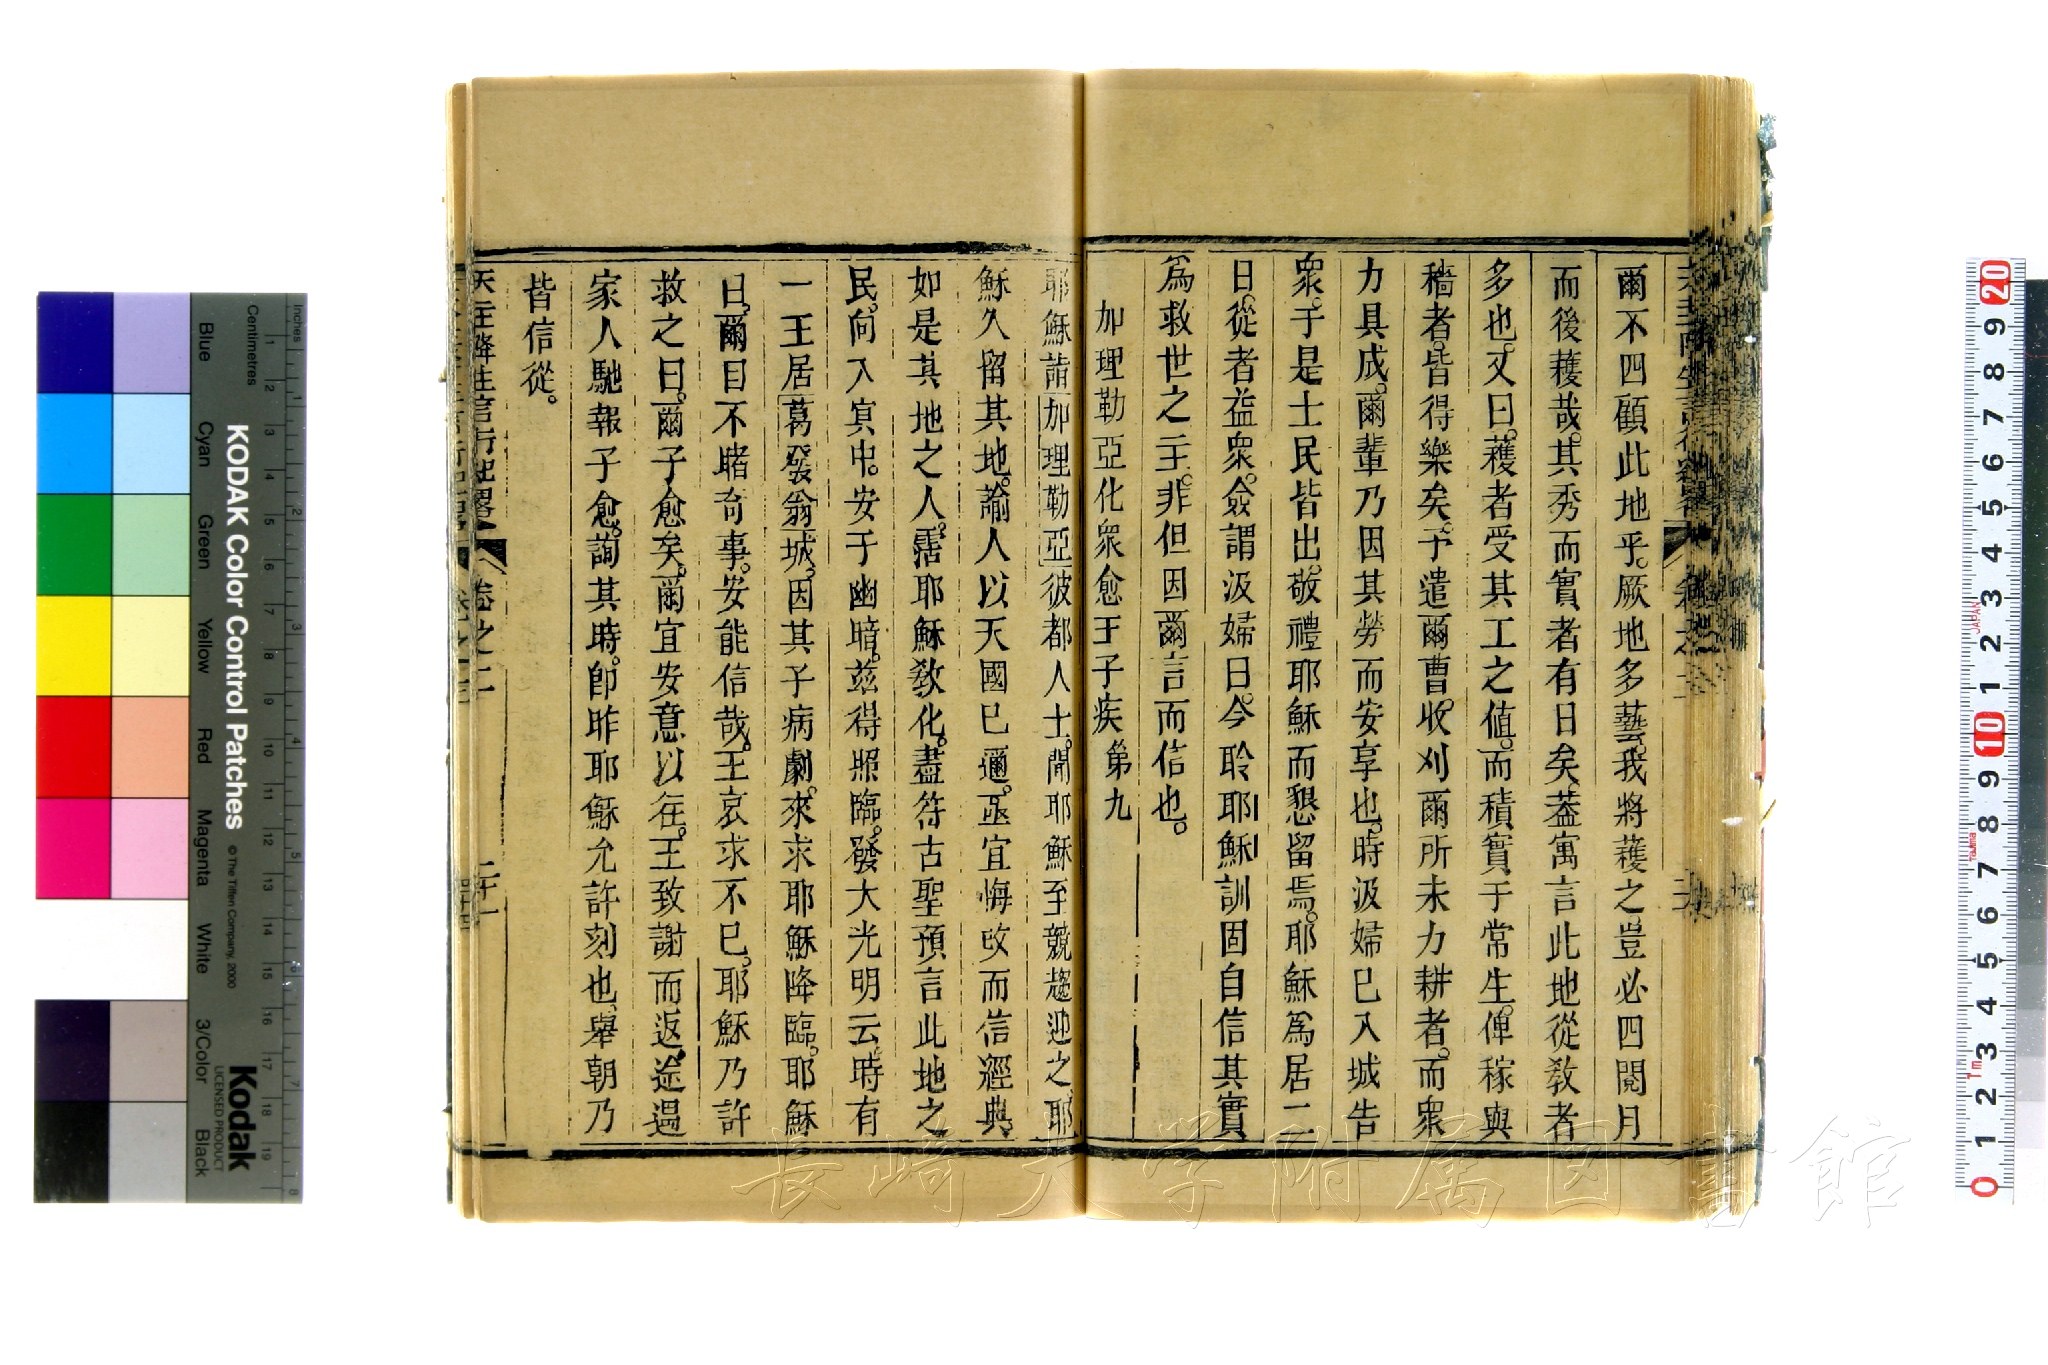 爾不四顧此地乎。厥地多藝。我將穫之。豈必四閱月
而後穫哉。其秀而實者有日矣。蓋寓言此地從教者
多也。又曰。穫者受其工之値。而積實于常生。俾稼與
穡者。皆得樂矣。予遣爾曹。收刈爾所未力耕者。而衆
力具成。爾輩乃因其勞而安享也。時汲婦已入城告
衆。于是士民皆出。敬禮耶穌而懇留焉。耶穌爲居二
日。從者益衆。僉謂汲婦曰。今聆耶穌訓固自信其實
爲救世之主。非但因爾言而信也。
加理勒亞化衆愈王子疾第九
耶穌詣加理勒亞彼都人士。聞耶穌至競趨迎之。耶
穌久留其地。諭人以天國已邇。亟宜悔改而信經典。
如是其地之人。霑耶穌教化。盡符古聖預言此地之
民。向入冥中。安于幽暗。兹得照臨。發大光明云。時有
一王居葛發翁城。因其子病劇。來求耶穌降臨。耶穌
曰。爾目不睹奇事。安能信哉。王哀求不已。耶穌乃許
救之曰。爾子愈矣。爾宜安意以往。王致謝而返。途遇
家人馳報子愈。詢其時。卽昨耶穌允許刻也。舉朝乃
皆信從。
天主降生言行紀畧 卷之二 二十一
KODAK Color Control Patches
© The Tiffen Company, 2000
Kodak
LICENSED PRODUCT
Inches
Centimetres
Blue Cyan Green Yellow Red Magenta White 3/Color Black
長崎大学附属図書館